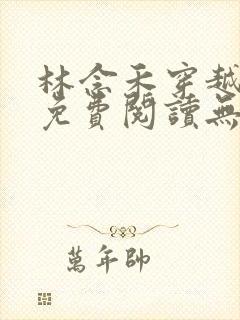 林念禾穿越
免費閱讀無
萬年帥